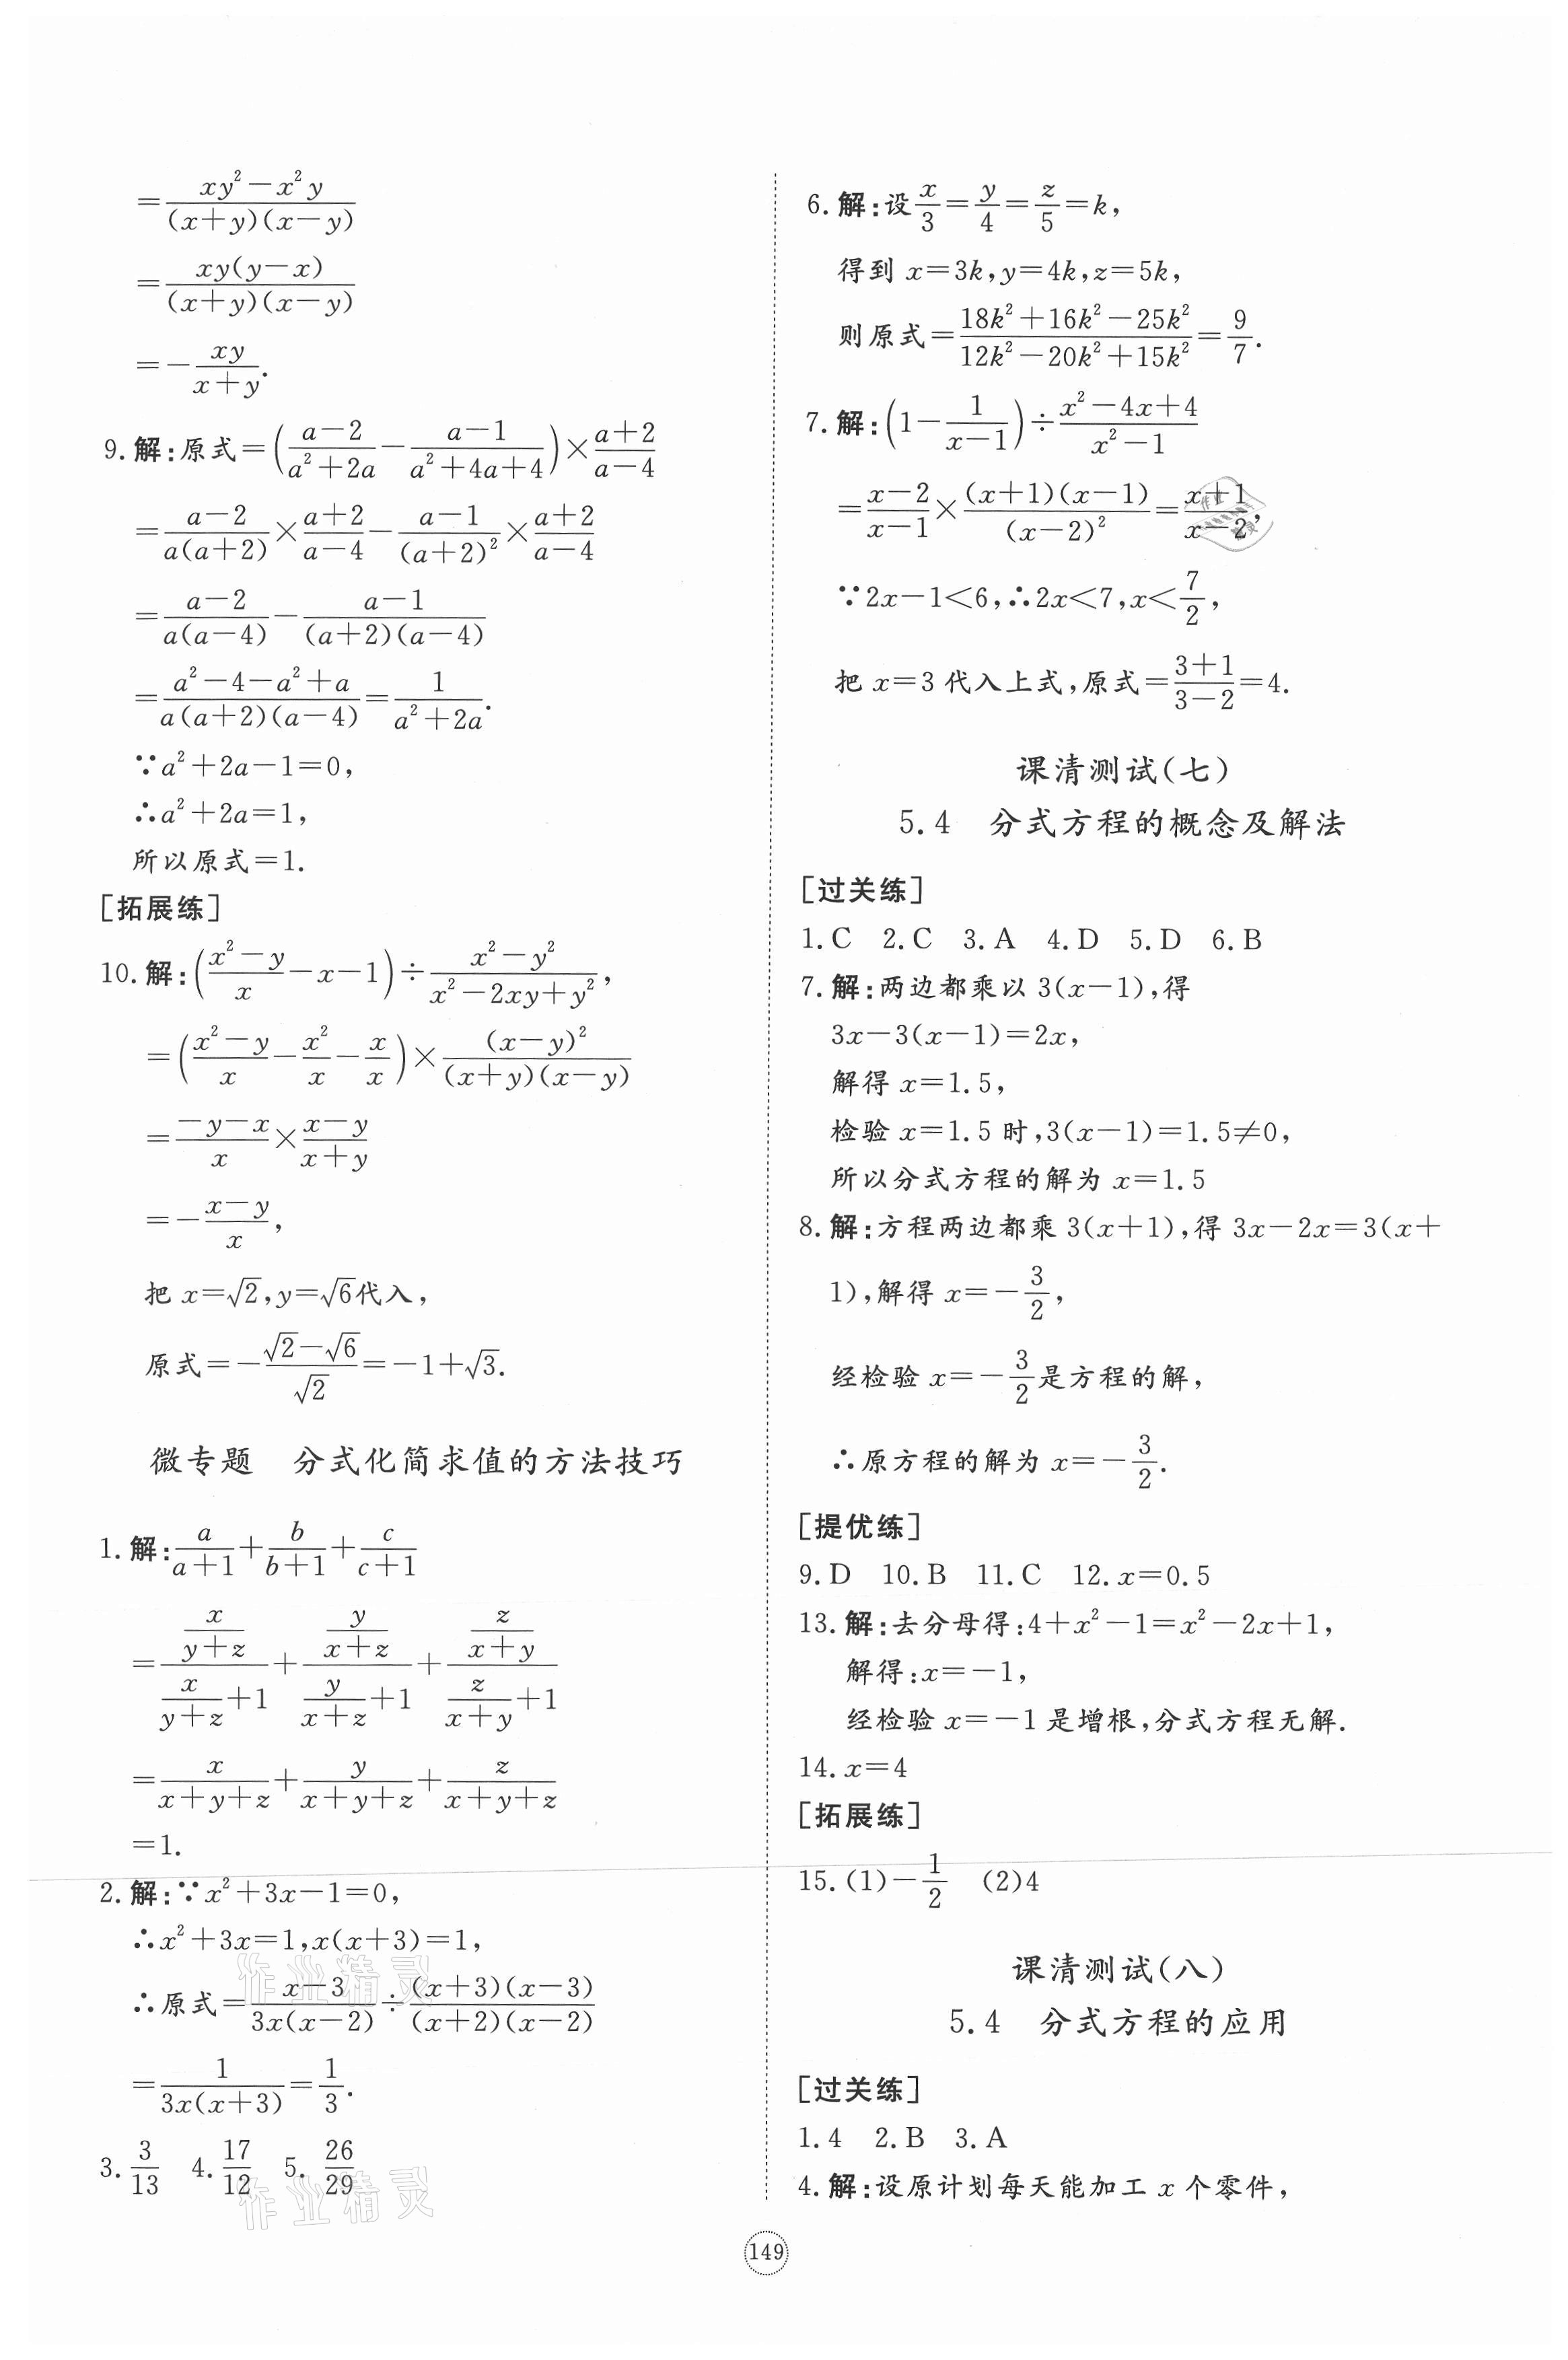 =\frac{xy²-x²y}{(x+y)(x-y)}
=\frac{xy(y-x)}{(x+y)(x-y)}
=-\frac{xy}{x+y}.
9.解:原式=(\frac{a-2}{a²+2a}-\frac{a-1}{a²+4a+4})×\frac{a+2}{a-4}
=\frac{a-2}{a(a+2)}×\frac{a+2}{a-4}-\frac{a-1}{(a+2)²}×\frac{a+2}{a-4}
=\frac{a-2}{a(a-4)}-\frac{a-1}{(a+2)(a-4)}
=\frac{a²-4-a²+a}{a(a+2)(a-4)}=\frac{1}{a²+2a}.
∵a²+2a-1=0,
∴a²+2a=1,
所以原式=1.
[拓展练]
10.解:(\frac{x²-y}{x}-x-1)÷\frac{x²-y²}{x²-2xy+y²},
=(\frac{x²-y}{x}-\frac{x²}{x}-\frac{x}{x})×\frac{(x-y)²}{(x+y)(x-y)}
=\frac{-y-x}{x}×\frac{x-y}{x+y}
=-\frac{x-y}{x},
把 x=√2,y=√6代入,
原式=-\frac{√2-√6}{√2}=-1+√3.
微专题 分式化简求值的方法技巧
1.解:\frac{a}{a+1}+\frac{b}{b+1}+\frac{c}{c+1}
=\frac{\frac{x}{y+z}}{\frac{x}{y+z}+1}+\frac{\frac{y}{x+z}}{\frac{y}{x+z}+1}+\frac{\frac{z}{x+y}}{\frac{z}{x+y}+1}
=\frac{x}{x+y+z}+\frac{y}{x+y+z}+\frac{z}{x+y+z}
=1.
2.解:∵x²+3x-1=0,
∴x²+3x=1,x(x+3)=1,
∴原式=\frac{x-3}{3x(x-2)}÷\frac{(x+3)(x-3)}{(x+2)(x-2)}
=\frac{1}{3x(x+3)}=\frac{1}{3}.
3.\frac{3}{13} 4.\frac{17}{12} 5.\frac{26}{29}
作业精灵
作业精灵
6.解:设\frac{x}{3}=\frac{y}{4}=\frac{z}{5}=k,
得到 x=3k,y=4k,z=5k,
则原式=\frac{18k²+16k²-25k²}{12k²-20k²+15k²}=\frac{9}{7}.
7.解:(1-\frac{1}{x-1})÷\frac{x²-4x+4}{x²-1}
=\frac{x-2}{x-1}×\frac{(x+1)(x-1)}{(x-2)²}=\frac{x+1}{x-2},
∵2x-1<6,∴2x<7,x<\frac{7}{2},
把 x=3 代入上式,原式=\frac{3+1}{3-2}=4.
课清测试(七)
5.4 分式方程的概念及解法
[过关练]
1.C 2.C 3.A 4.D 5.D 6.B
7.解:两边都乘以 3(x-1),得
3x-3(x-1)=2x,
解得 x=1.5,
检验 x=1.5 时,3(x-1)=1.5≠0,
所以分式方程的解为 x=1.5
8.解:方程两边都乘 3(x+1),得 3x-2x=3(x+
1),解得 x=-\frac{3}{2},
经检验 x=-\frac{3}{2}是方程的解,
∴原方程的解为 x=-\frac{3}{2}.
[提优练]
9.D 10.B 11.C 12.x=0.5
13.解:去分母得:4+x²-1=x²-2x+1,
解得:x=-1,
经检验 x=-1 是增根,分式方程无解.
14.x=4
[拓展练]
15.(1)-\frac{1}{2} (2)4
课清测试(八)
5.4 分式方程的应用
[过关练]
1.4 2.B 3.A
4.解:设原计划每天能加工 x 个零件,
149